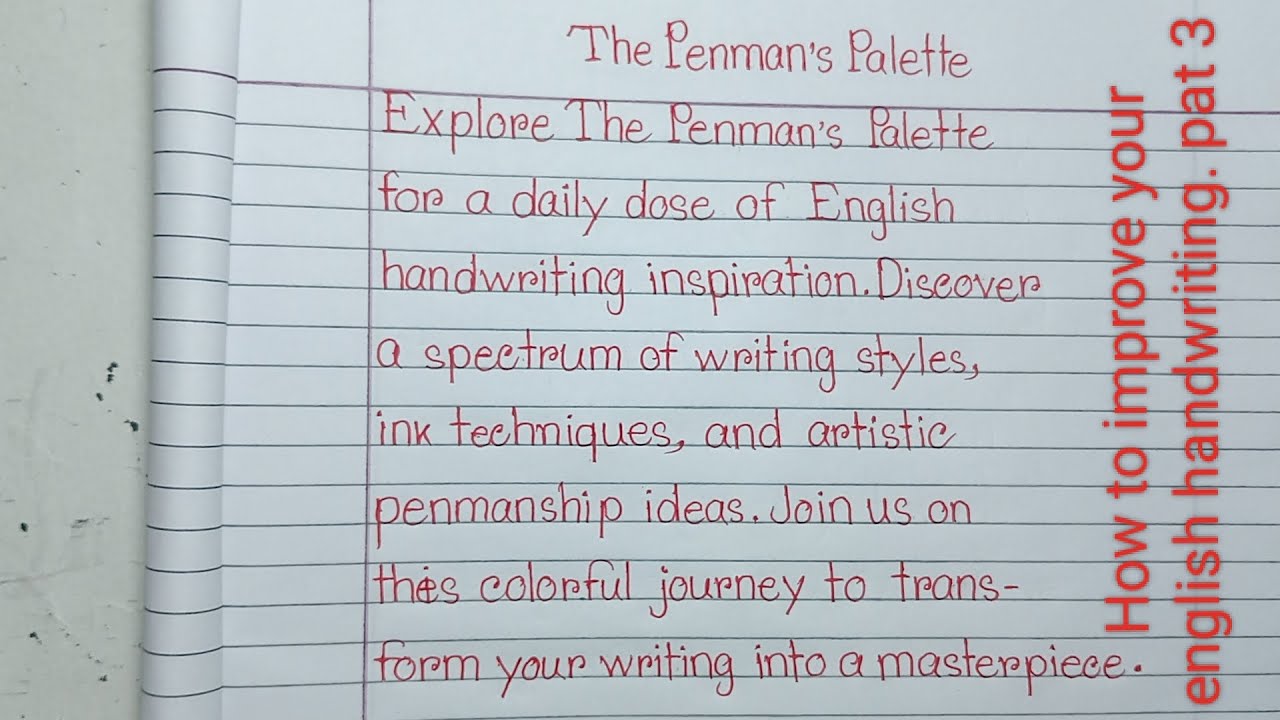 The Penman's Palette
Explore The Penman's Palette
for a daily dose of English
handwriting inspiration. Discover
a spectrum of writing styles,
ink techniques, and artistic
penmanship ideas. Join us on
this colorful journey to trans-
form your writing into a masterpiece.
How to improve your
english handwriting. pat 3